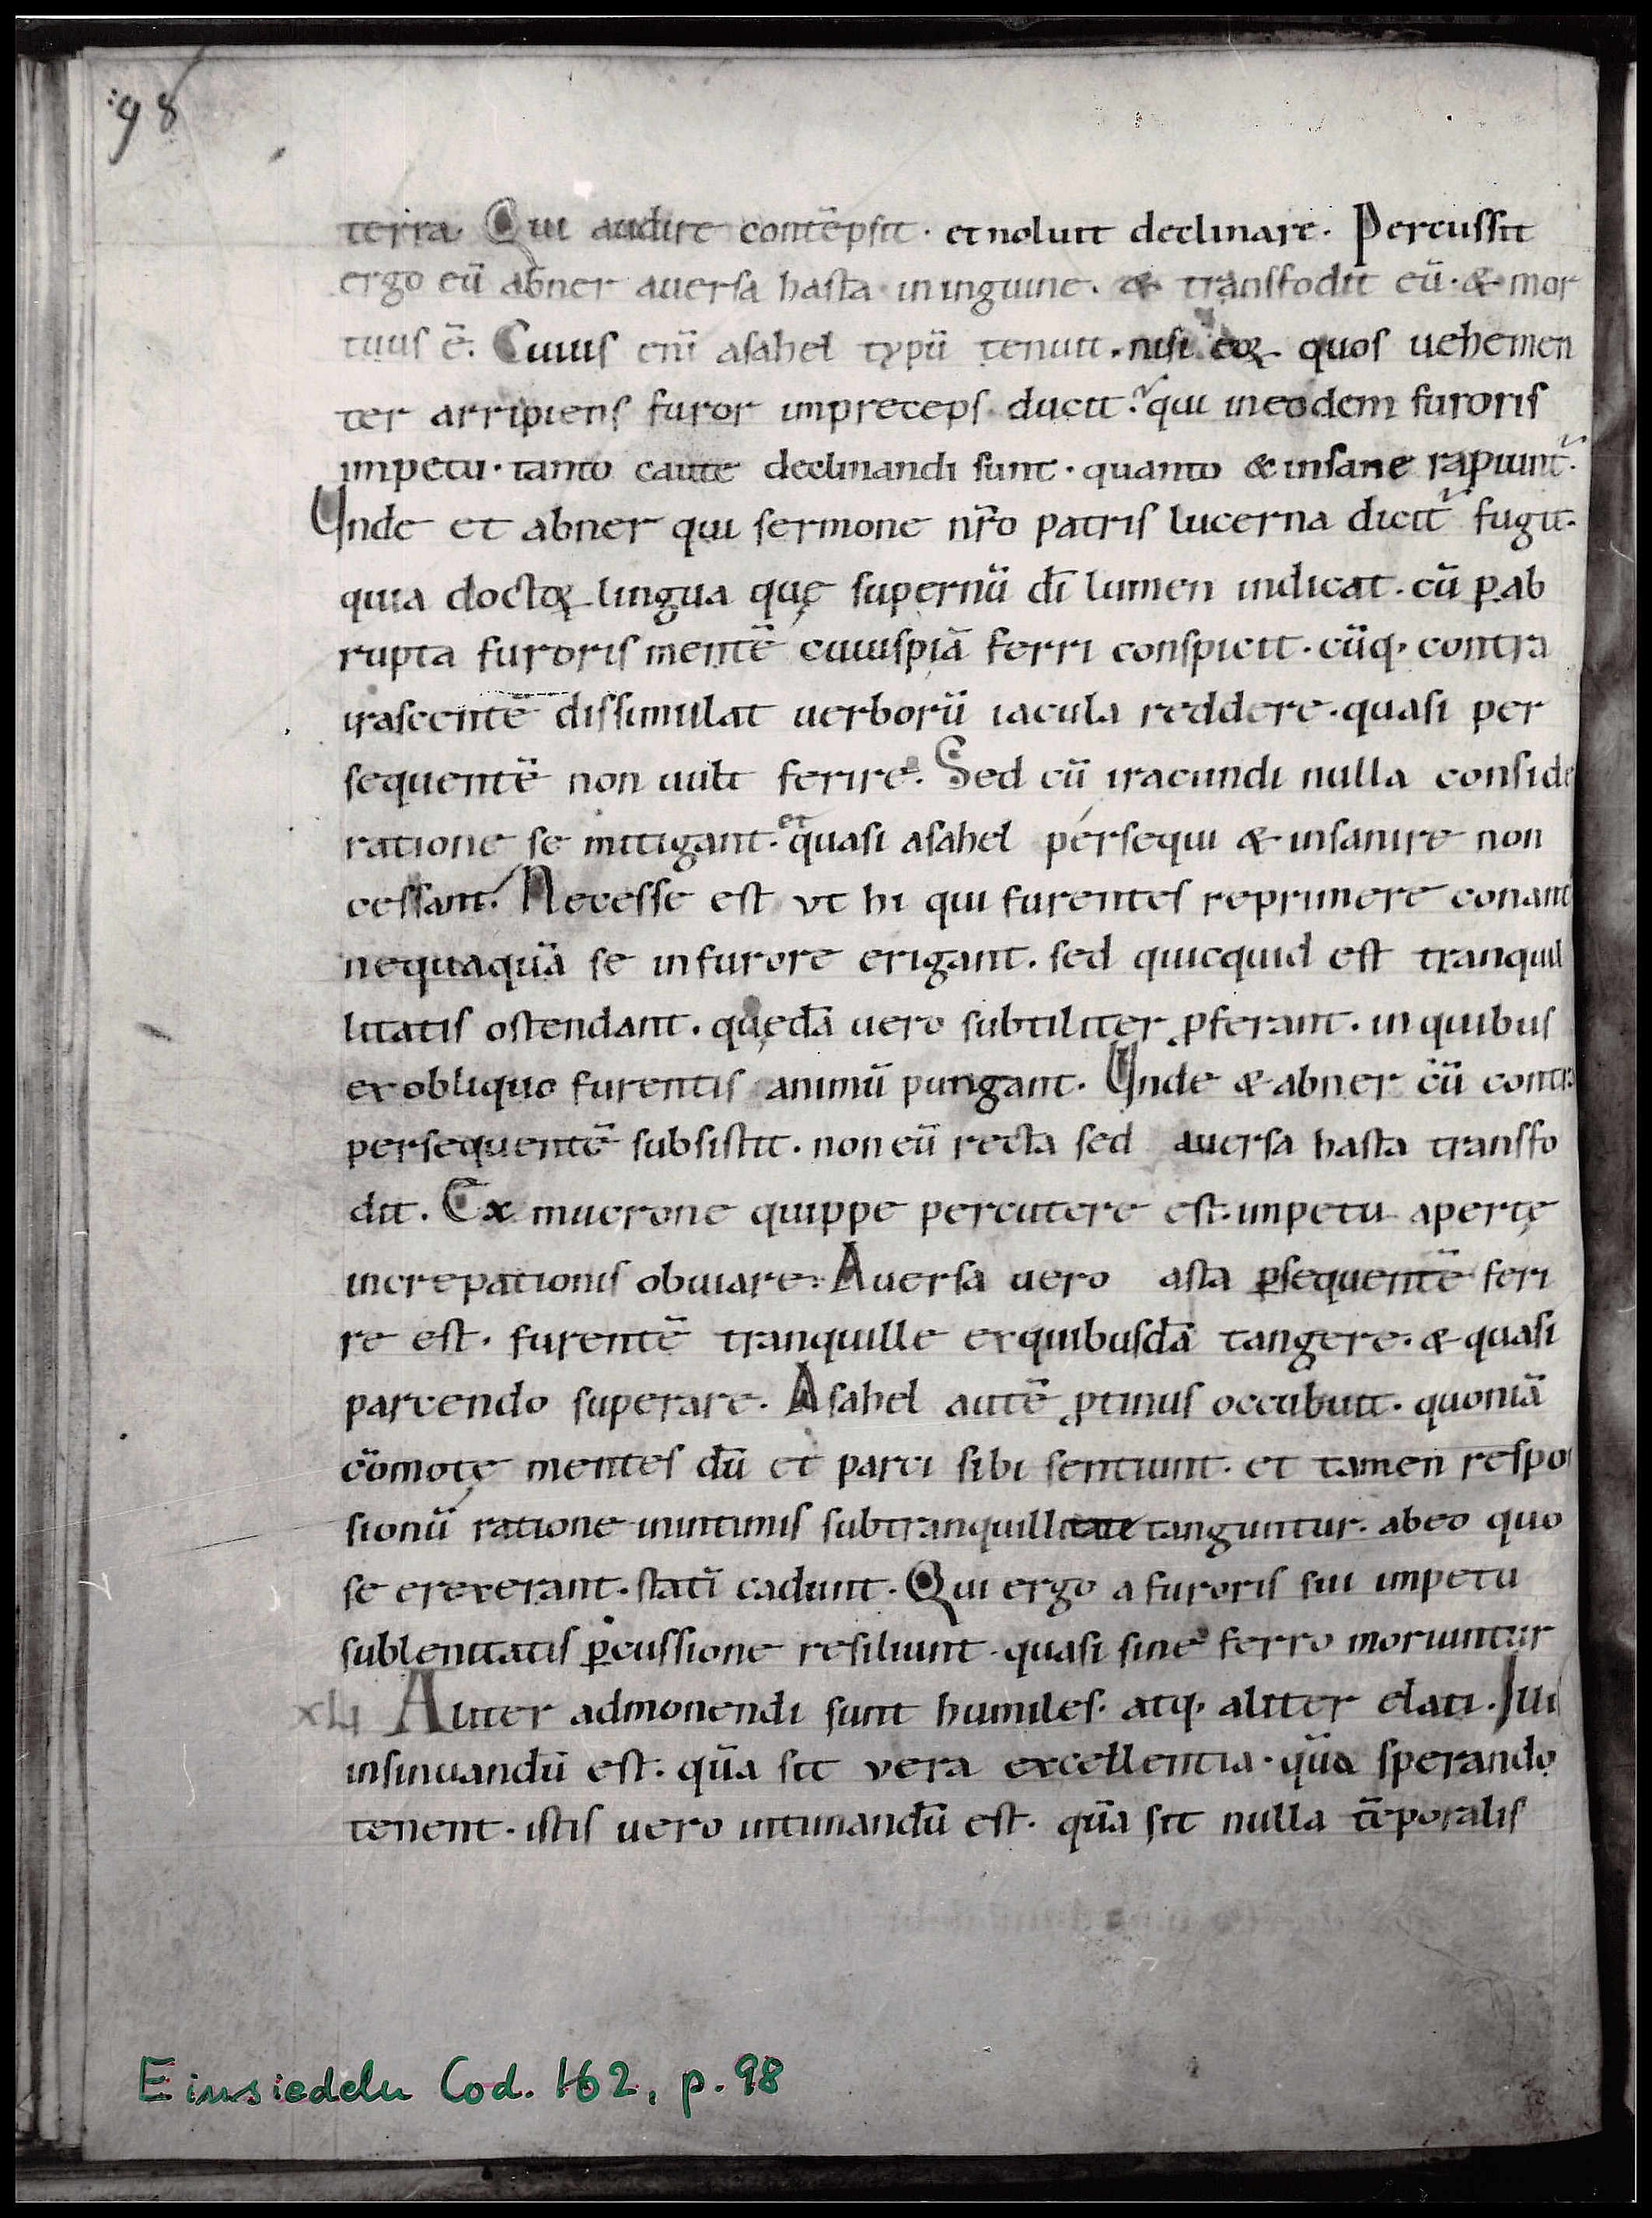 98
terra. Qui audire contēpsit · et noluit declinare. Percussit
ergo eū abner auersa hasta in inguine. & transfodit eū. & mor
tuus ē. Cuius eni̅ asahel typū tenuit. nisi eoꝝ quos uehemen
ter arripiens furor in preceps ducit. qui in eodem furoris
impetu. tanto caute declinandi sunt. quanto & insane rapiunt᷑.
Unde et abner qui sermone nr̄o patris lucerna dicit᷑ fugit.
quia doctoꝝ lingua quę supernū dī lumen indicat. cū ꝑ ab
rupta furoris mentē cuiuspiā ferri conspicit. cūq; contra
irascentē dissimulat uerborū iacula reddere. quasi per
sequentē non uult ferire. Sed cū iracundi nulla conside
ratione se mitigant. et quasi asahel persequi & insanire non
cessant. Necesse est vt hi qui furentes reprimere conant᷑
nequaquā se in furore erigant. sed quicquid est tranquil
litatis ostendant. quędā uero subtiliter ꝓferant. in quibus
ex obliquo furentis animū pungant. Unde & abner cū contra
persequentē subsistit. non eū recta sed auersa hasta transfo
dit. Ex mucrone quippe percutere est. impetu apertę
increpationis obuiare. Auersa uero asta ꝑsequentē feri
re est. furentē tranquille ex quibusdā tangere. & quasi
parcendo superare. Asahel autē ꝓtinus occubuit. quoniā
cōmotę mentes dū et parci sibi sentiunt. et tamen respon
sionū ratione in intimis sub tranquillitate tanguntur. ab eo quo
se erexerant. statī cadunt. Qui ergo a furoris sui impetu
sub lenitatis ꝑcussione resiliunt. quasi sine ferro moriuntur
xlı Aliter admonendi sunt humiles. atq; aliter elati. Illi
insinuandū est. quā sit vera excellentia. quā sperando
tenent. istis uero intimandū est. quā sit nulla tēporalis
Einsiedeln Cod. 162, p. 98